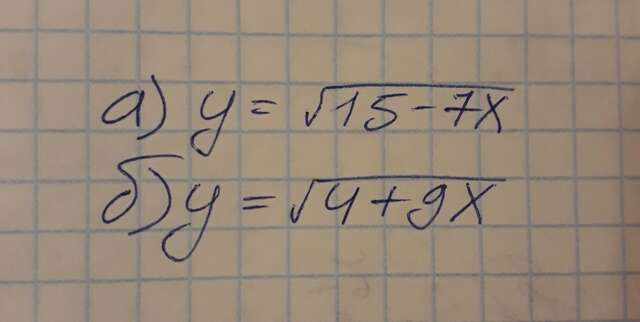 а) y = √15-7x
б) y = √4+9x